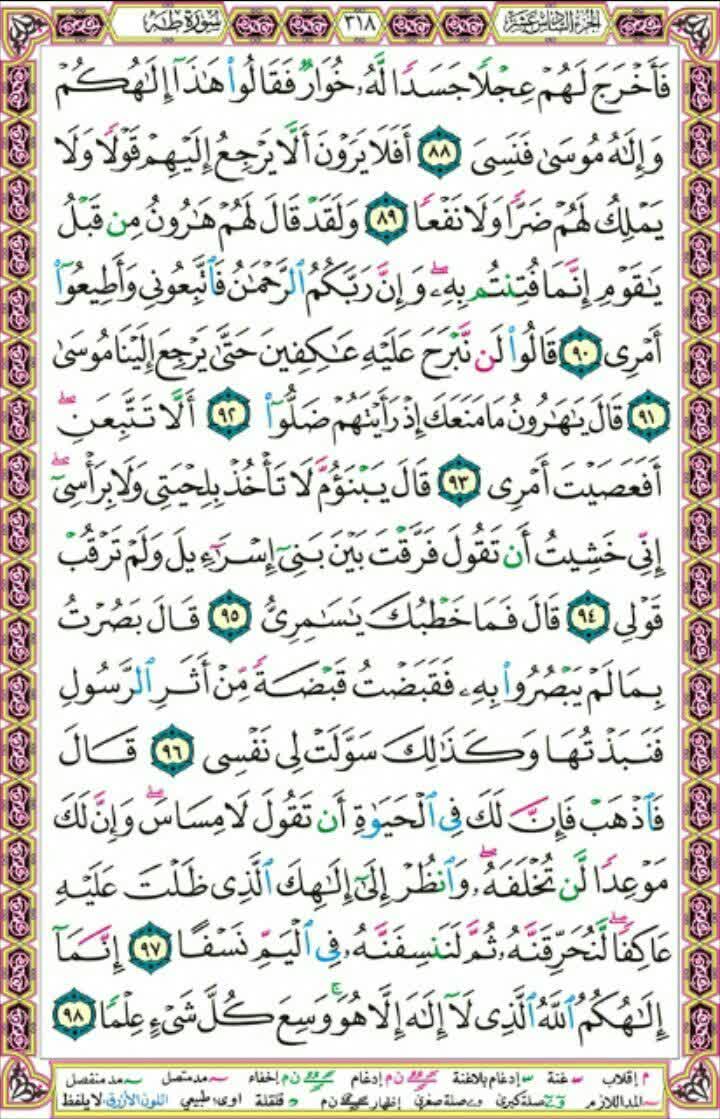 الجزء السادس عشر ٣١٨ سورة طه
فَأَخْرَجَ لَهُمْ عِجْلًا جَسَدًا لَّهُۥ خُوَارٌ فَقَالُوا۟ هَٰذَآ إِلَٰهُكُمْ
وَإِلَٰهُ مُوسَىٰ فَنَسِىَ ٨٨ أَفَلَا يَرَوْنَ أَلَّا يَرْجِعُ إِلَيْهِمْ قَوْلًا وَلَا
يَمْلِكُ لَهُمْ ضَرًّا وَلَا نَفْعًا ٨٩ وَلَقَدْ قَالَ لَهُمْ هَٰرُونُ مِن قَبْلُ
يَٰقَوْمِ إِنَّمَا فُتِنتُم بِهِۦ ۖ وَإِنَّ رَبَّكُمُ ٱلرَّحْمَٰنُ فَٱتَّبِعُونِى وَأَطِيعُوٓا۟
أَمْرِى ٩٠ قَالُوا۟ لَن نَّبْرَحَ عَلَيْهِ عَٰكِفِينَ حَتَّىٰ يَرْجِعَ إِلَيْنَا مُوسَىٰ
٩١ قَالَ يَٰهَٰرُونُ مَا مَنَعَكَ إِذْ رَأَيْتَهُمْ ضَلُّوٓا۟ ٩٢ أَلَّا تَتَّبِعَنِ ۖ
أَفَعَصَيْتَ أَمْرِى ٩٣ قَالَ يَبْنَؤُمَّ لَا تَأْخُذْ بِلِحْيَتِى وَلَا بِرَأْسِىٓ ۖ
إِنِّى خَشِيتُ أَن تَقُولَ فَرَّقْتَ بَيْنَ بَنِىٓ إِسْرَٰٓءِيلَ وَلَمْ تَرْقُبْ
قَوْلِى ٩٤ قَالَ فَمَا خَطْبُكَ يَٰسَٰمِرِىُّ ٩٥ قَالَ بَصُرْتُ
بِمَا لَمْ يَبْصُرُوا۟ بِهِۦ فَقَبَضْتُ قَبْضَةً مِّنْ أَثَرِ ٱلرَّسُولِ
فَنَبَذْتُهَا وَكَذَٰلِكَ سَوَّلَتْ لِى نَفْسِى ٩٦ قَالَ
فَٱذْهَبْ فَإِنَّ لَكَ فِى ٱلْحَيَوٰةِ أَن تَقُولَ لَا مِسَاسَ ۖ وَإِنَّ لَكَ
مَوْعِدًا لَّن تُخْلَفَهُۥ ۖ وَٱنظُرْ إِلَىٰٓ إِلَٰهِكَ ٱلَّذِى ظَلْتَ عَلَيْهِ
عَاكِفًا ۖ لَّنُحَرِّقَنَّهُۥ ثُمَّ لَنَنسِفَنَّهُۥ فِى ٱلْيَمِّ نَسْفًا ٩٧ إِنَّمَآ
إِلَٰهُكُمُ ٱللَّهُ ٱلَّذِى لَآ إِلَٰهَ إِلَّا هُوَ ۚ وَسِعَ كُلَّ شَىْءٍ عِلْمًا ٩٨
م إقلاب غنة إدغام بلاغنة ن م إدغام ن م إخفاء مد متصل مد منفصل
المد اللازم صلة كبرى صلة صغرى إظهار ن م قلقلة اوى: طبيعي اللون الأزرق: لا يلفظ